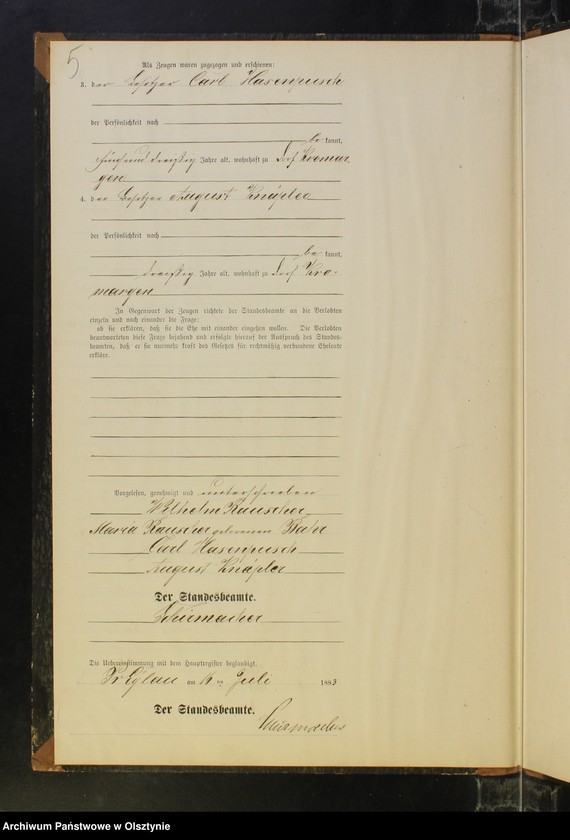 5
Als Zeugen waren zugezogen und erschienen:
3. der Besitzer Carl Hasenpusch
der Persönlichkeit nach
be kannt,
fünf und dreißig Jahre alt, wohnhaft zu Dorf Kromar
gen
4. der Besitzer August Knäpler
der Persönlichkeit nach
be kannt,
dreißig Jahre alt, wohnhaft zu Dorf Kro-
margen
In Gegenwart der Zeugen richtete der Standesbeamte an die Verlobten
einzeln und nach einander die Frage:
ob sie erklären, daß sie die Ehe mit einander eingehen wollen. Die Verlobten
beantworteten diese Frage bejahend und erfolgte hierauf der Ausspruch des Standes-
beamten, daß er sie nunmehr kraft des Gesetzes für rechtmäßig verbundene Eheleute
erkläre.
Vorgelesen, genehmigt und unterschrieben
Wilhelm Rauscher
Maria Rauscher geborenen
Carl Hasenpusch
August Knäpler
Der Standesbeamte.
Schirmacher
Die Uebereinstimmung mit dem Hauptregister beglaubigt.
Pr Eylau am ten Juli 1883
Der Standesbeamte.
Schirmacher
Archiwum Państwowe w Olsztynie